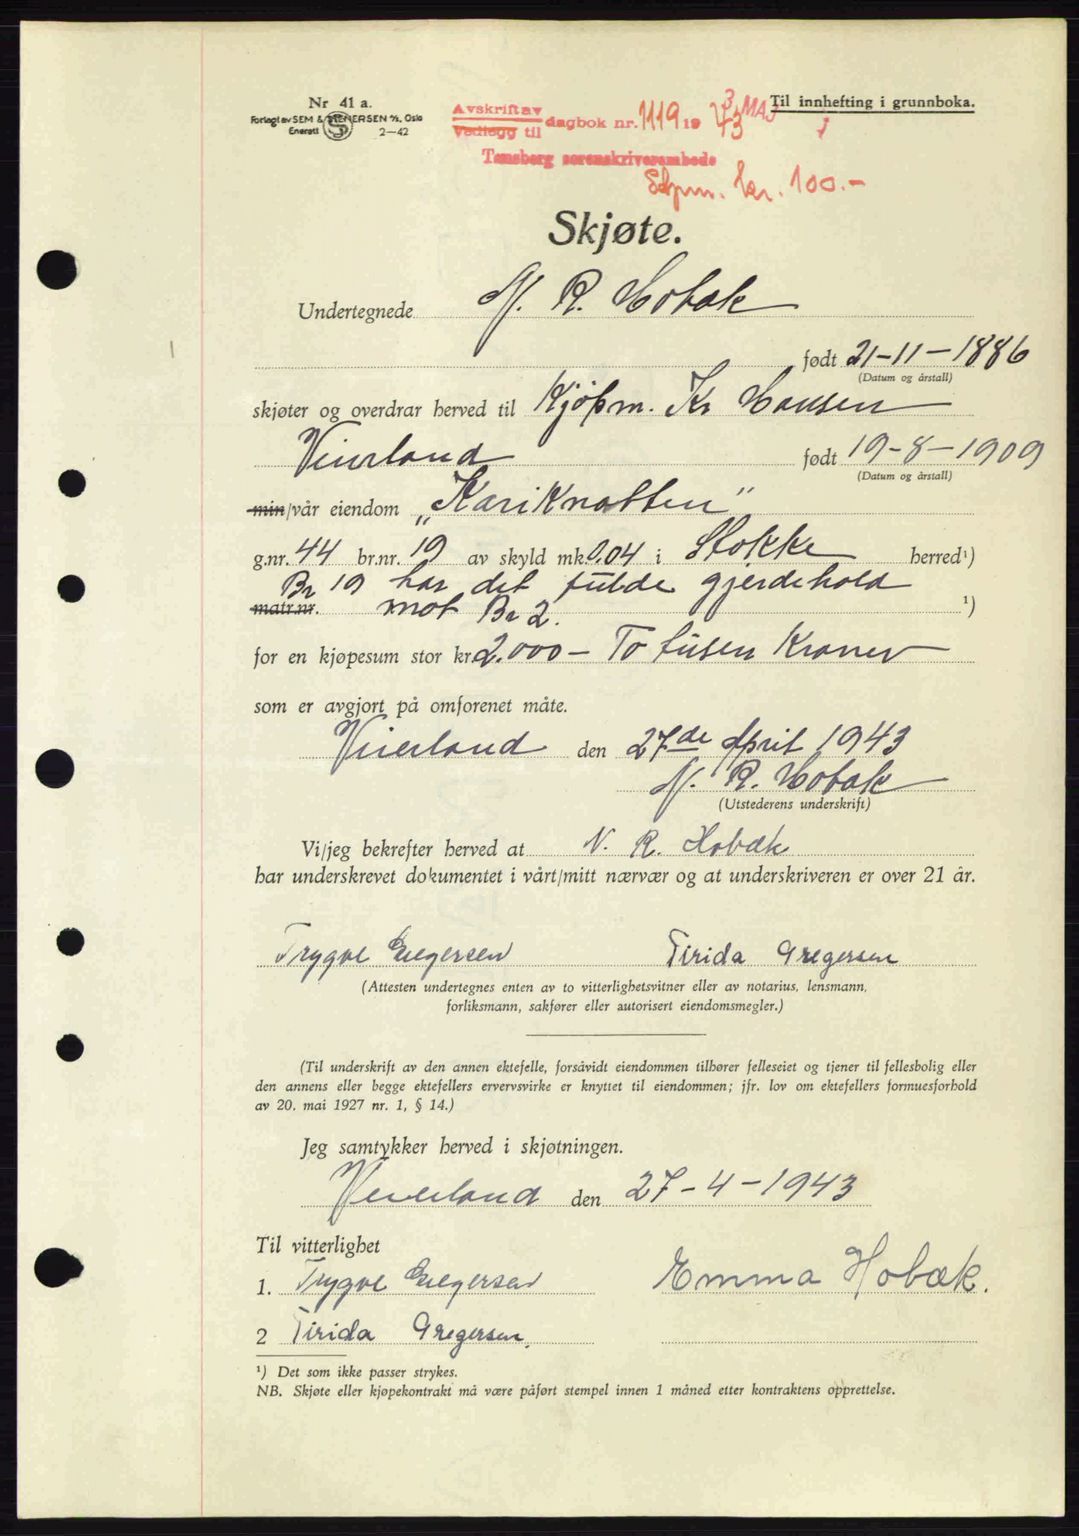 Nr 41 a.
Forlagt av SEM & STENERSEN A/S, Oslo
Enerett S 2-42
Avskrift av
Vedlegg til dagbok nr. 1119 19 43
3 MAJ
Til innhefting i grunnboka.
Tønsberg sorenskriverembede
Stpm. kr. 100.-
Skjøte.
Undertegnede N. R. Hobæk
født 21-11-1886
(Datum og årstall)
skjøter og overdrar herved til Kjøpm. Kr Hansen
Veierland født 19-8-1909
(Datum og årstall)
min/vår eiendom „KariKnatten"
g.nr. 44 br.nr. 19 av skyld mk. 0.04 i Stokke herred¹)
Br 19 har det fulde gjerdehold
matr.nr. mot Br 2. ¹)
for en kjøpesum stor kr. 2.000 – To tusen Kroner
som er avgjort på omforenet måte.
Veierland den 27de April 1943
N. R. Hobæk
(Utstederens underskrift)
Vi/jeg bekrefter herved at N. R. Hobæk
har underskrevet dokumentet i vårt/mitt nærvær og at underskriveren er over 21 år.
Trygve Gregersen Tirida Gregersen
(Attesten undertegnes enten av to vitterlighetsvitner eller av notarius, lensmann,
forliksmann, sakfører eller autorisert eiendomsmegler.)
(Til underskrift av den annen ektefelle, forsåvidt eiendommen tilhører felleseiet og tjener til fellesbolig eller
den annens eller begge ektefellers ervervsvirke er knyttet til eiendommen; jfr. lov om ektefellers formuesforhold
av 20. mai 1927 nr. 1, § 14.)
Jeg samtykker herved i skjøtningen.
Veierland den 27-4-1943
Til vitterlighet
1. Trygve Gregersen Emma Hobæk.
2 Tirida Gregersen.
¹) Det som ikke passer strykes.
NB. Skjøte eller kjøpekontrakt må være påført stempel innen 1 måned etter kontraktens opprettelse.